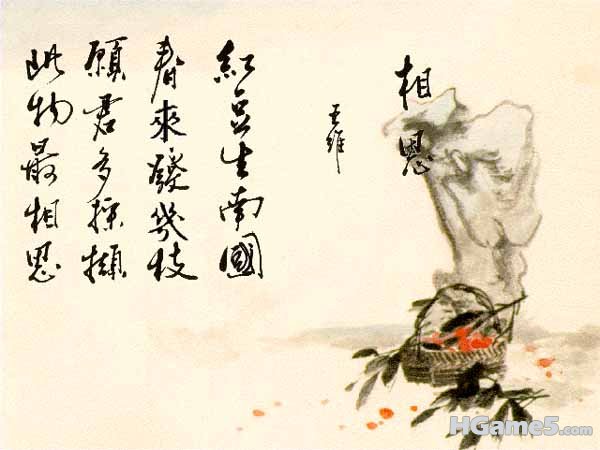 相思
王維
紅豆生南國
春來發幾枝
願君多採擷
此物最相思
HGame5.com